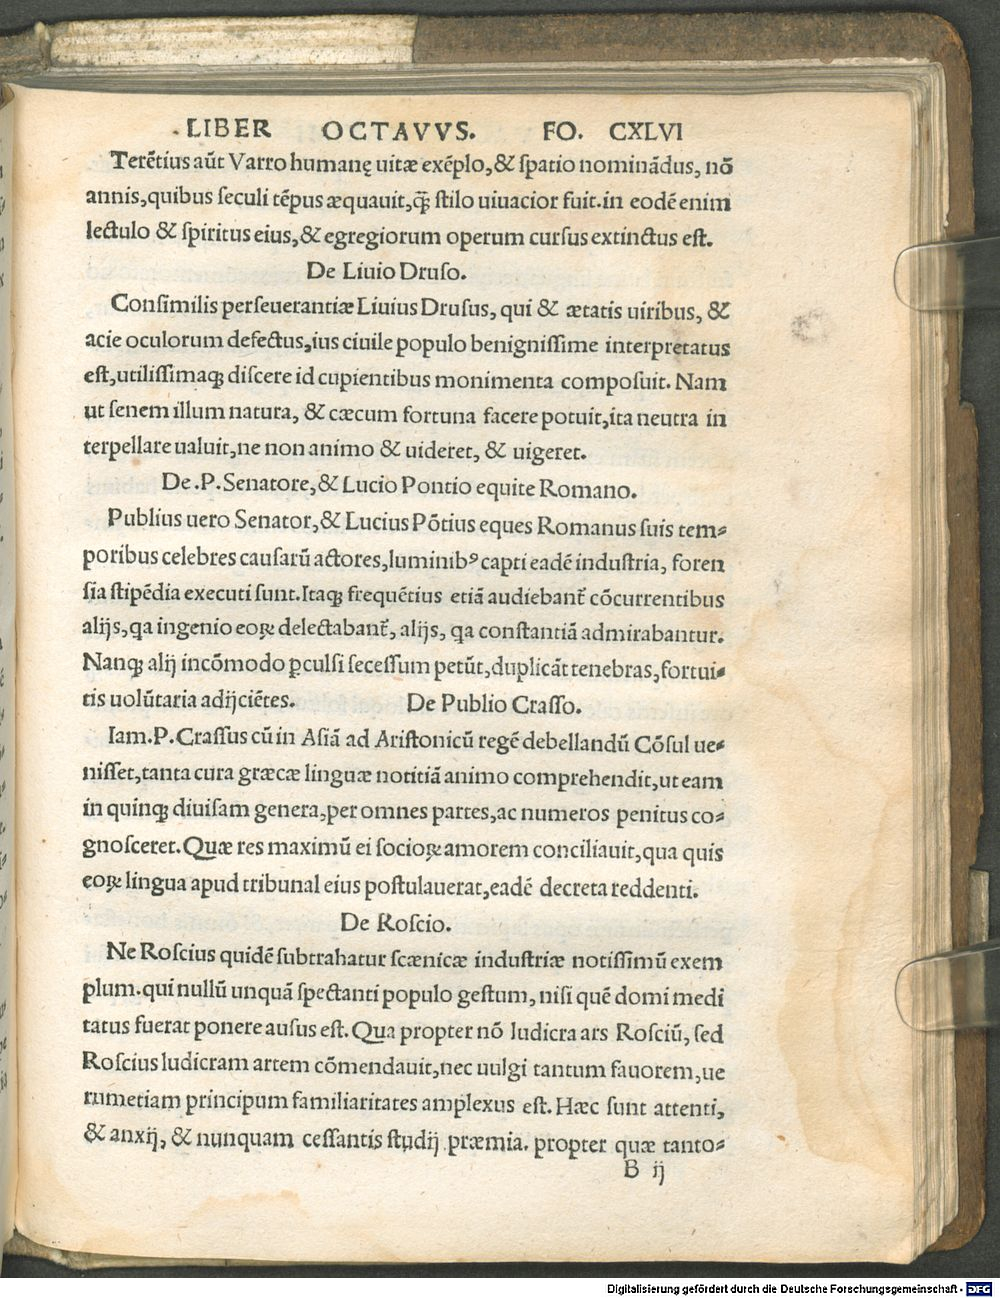 LIBER OCTAVVS. FO. CXLVI
Terẽtius aũt Varro humanę uitæ exẽplo,& ſpatio nominãdus, nõ
annis,quibus ſeculi tẽpus æquauit,q̃ꝫ ſtilo uiuacior fuit.in eodẽ enim
lectulo & ſpiritus eius,& egregiorum operum curſus extinctus eſt.
De Liuio Druſo.
Conſimilis perſeuerantiæ Liuius Druſus, qui & ætatis uiribus, &
acie oculorum defectus,ius ciuile populo benigniſſime interpretatus
eſt,utiliſſimaqꝫ diſcere id cupientibus monimenta compoſuit. Nam
ut ſenem illum natura, & cæcum fortuna facere potuit,ita neutra in
terpellare ualuit,ne non animo & uideret, & uigeret.
De .P. Senatore,& Lucio Pontio equite Romano.
Publius uero Senator,& Lucius Põtius eques Romanus ſuis tem⸗
poribus celebres cauſarũ actores,luminibꝰ capti eadẽ induſtria, foren
ſia ſtipẽdia executi ſunt.Itaqꝫ frequẽtius etiã audiebant̃ cõcurrentibus
alijs,qa ingenio eoꝝ delectabant̃, alijs, qa conſtantiã admirabantur.
Nanqꝫ alij incõmodo ꝑculſi ſeceſſum petũt,duplicãt tenebras,fortui⸗
tis uolũtaria adijciẽtes. De Publio Craſſo.
Iam.P.Craſſus cũ in Aſiã ad Ariſtonicũ regẽ debellandũ Cõſul ue⸗
niſſet,tanta cura græcæ linguæ notitiã animo comprehendit,ut eam
in quinqꝫ diuiſam genera,per omnes partes,ac numeros penitus co⸗
gnoſceret.Quæ res maximũ ei ſocioꝝ amorem conciliauit,qua quis
eoꝝ lingua apud tribunal eius poſtulauerat,eadẽ decreta reddenti.
De Roſcio.
Ne Roſcius quidẽ ſubtrahatur ſcænicæ induſtriæ notiſſimũ exem
plum.qui nullũ unquã ſpectanti populo geſtum, niſi quẽ domi medi
tatus fuerat ponere auſus eſt. Qua propter nõ ludicra ars Roſciũ, ſed
Roſcius ludicram artem cõmendauit,nec uulgi tantum fauorem,ue
rumetiam principum familiaritates amplexus eſt. Hæc ſunt attenti,
& anxij, & nunquam ceſſantis ſtudij præmia. propter quæ tanto⸗
B ij
Digitalisierung gefördert durch die Deutsche Forschungsgemeinschaft - DFG